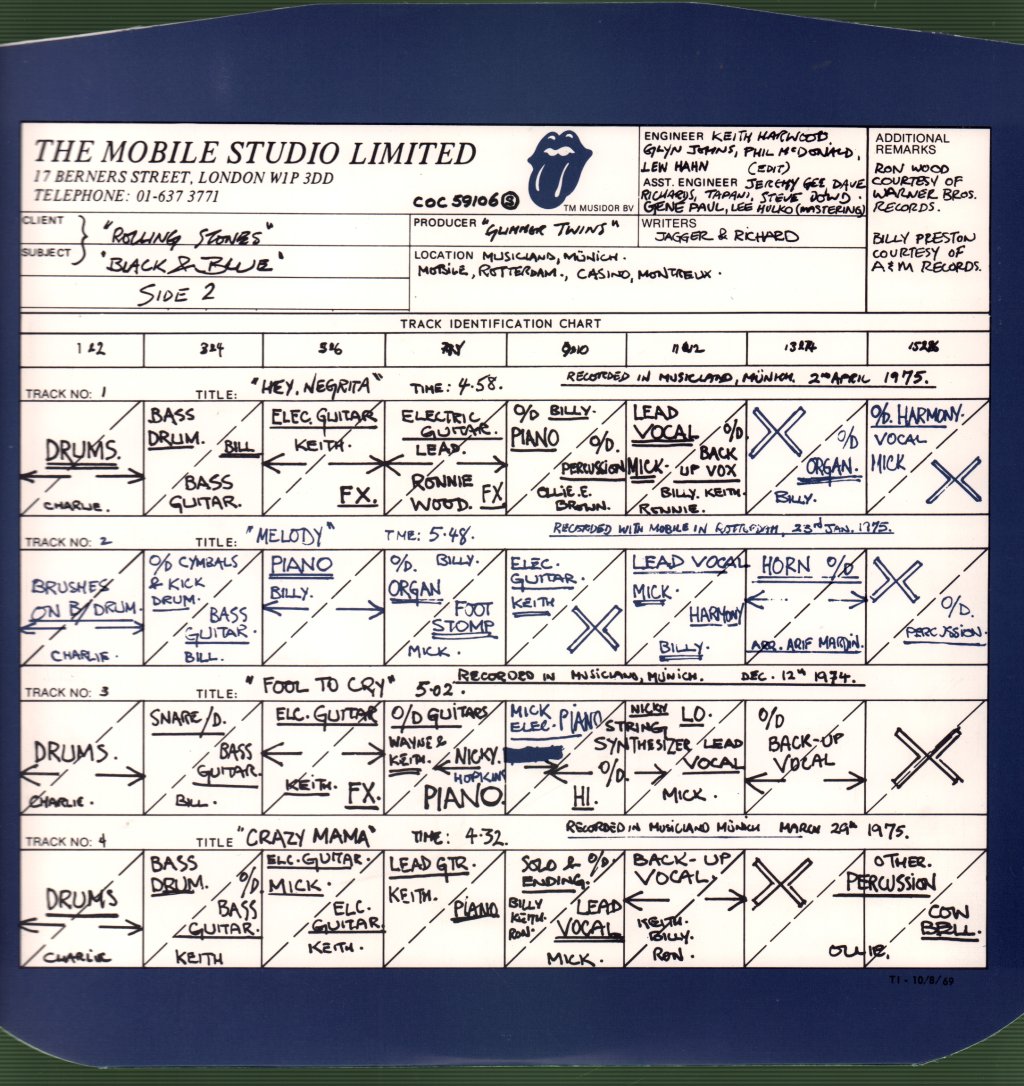 THE MOBILE STUDIO LIMITED
17 BERNERS STREET, LONDON W1P 3DD
TELEPHONE: 01-637 3771
COC 59106 S
TM MUSIDOR BV
ENGINEER KEITH HARWOOD.
GLYN JOHNS, PHIL McDONALD,
LEW HAHN (EDIT)
ASST. ENGINEER JEREMY GEE DAVE
RICHARDS, TAPANI, STEVE DOWD.
GENE PAUL, LEE HULKO (MASTERING)
ADDITIONAL
REMARKS
RON WOOD
COURTESY OF
WARNER BROS.
RECORDS.
BILLY PRESTON
COURTESY OF
A&M RECORDS.
CLIENT
SUBJECT
"ROLLING STONES"
"BLACK & BLUE"
SIDE 2
PRODUCER "GLIMMER TWINS"
WRITERS
JAGGER & RICHARD
LOCATION MUSICLAND, MÜNICH.
MOBILE, ROTTERDAM., CASINO, MONTREUX.
TRACK IDENTIFICATION CHART
1&2 3&4 5&6 7&8 9&10 11&12 13&14 15&16
TRACK NO: 1 TITLE: "HEY, NEGRITA" TIME: 4.58. RECORDED IN MUSICLAND, MÜNICH. 2nd APRIL 1975.
DRUMS.
CHARLIE.
BASS
DRUM.
BILL
BASS
GUITAR.
ELEC. GUITAR
KEITH.
FX.
ELECTRIC
GUITAR.
LEAD.
RONNIE
WOOD.
FX
O/D BILLY.
PIANO
O/D.
PERCUSSION
OLLIE.E.
BROWN.
LEAD
VOCAL
MICK.
O/D
BACK
UP VOX
BILLY. KEITH.
RONNIE.
O/D
ORGAN.
BILLY.
O/D. HARMONY.
VOCAL
MICK
TRACK NO: 2 TITLE: "MELODY" TIME: 5.48. RECORDED WITH MOBILE IN ROTTERDAM, 23rd JAN. 1975.
BRUSHES
ON B/DRUM.
CHARLIE.
O/D CYMBALS
& KICK
DRUM.
BASS
GUITAR.
BILL.
PIANO
BILLY.
O/D. BILLY.
ORGAN
FOOT
STOMP
MICK.
ELEC.
GUITAR.
KEITH
LEAD VOCAL
MICK.
HARMONY
BILLY.
HORN O/D
ARR. ARIF MARDIN.
O/D.
PERCUSSION.
TRACK NO: 3 TITLE: "FOOL TO CRY" 5.02. RECORDED IN MUSICLAND, MÜNICH. DEC. 12th 1974.
DRUMS.
CHARLIE.
SNARE/D.
BASS
GUITAR.
BILL.
ELC. GUITAR
KEITH.
FX.
O/D GUITARS
WAYNE &
KEITH.
NICKY.
HOPKINS
PIANO.
MICK
ELEC. PIANO
NICKY
STRING
SYNTHESIZER
O/D.
HI.
LO.
LEAD
VOCAL
MICK.
O/D
BACK-UP
VOCAL
TRACK NO: 4 TITLE "CRAZY MAMA" TIME: 4.32. RECORDED IN MUSICLAND MÜNICH MARCH 29th 1975.
DRUMS
CHARLIE
BASS
DRUM.
O/D.
BASS
GUITAR.
KEITH
ELC. GUITAR.
MICK.
ELC.
GUITAR.
KEITH.
LEAD GTR.
KEITH.
PIANO
SOLO & O/D
ENDING.
BILLY
KEITH.
RON.
LEAD
VOCAL
MICK.
BACK-UP
VOCAL.
KEITH.
BILLY.
RON.
OTHER.
PERCUSSION
COW
BELL.
OLLIE.
T1 - 10/8/69